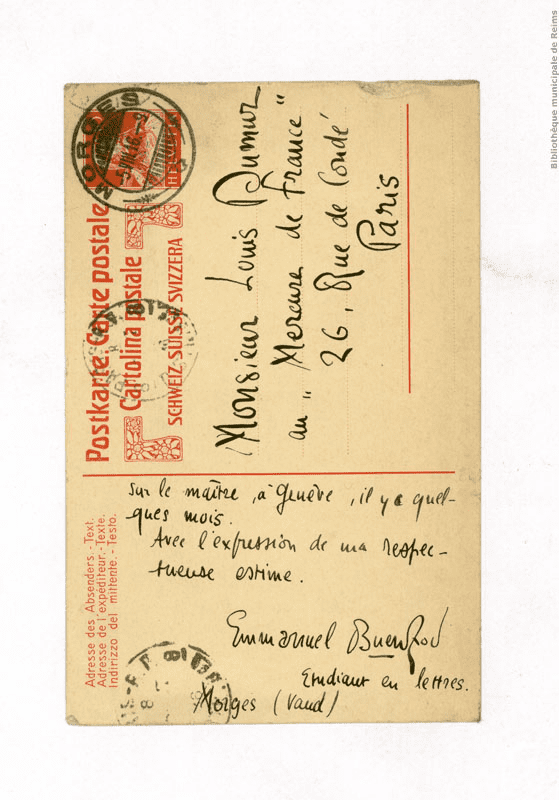 Bibliothèque municipale de Reims
MORGES
5.VIII.16.-9
HELVETIA
Postkarte. Carte postale.
Cartolina postale
SCHWEIZ SUISSE SVIZZERA
Monsieur Louis Dumur
au „Mercure de France"
26, Rue de Condé
Paris
Adresse des Absenders. - Text.
Adresse de l'expéditeur. - Texte.
Indirizzo del mittente. - Testo.
sur le maître, à Genève, il y a quel-
ques mois.
Avec l'expression de ma respec-
tueuse estime.
Emmanuel Buenzod
Etudiant en lettres.
Morges (Vaud)